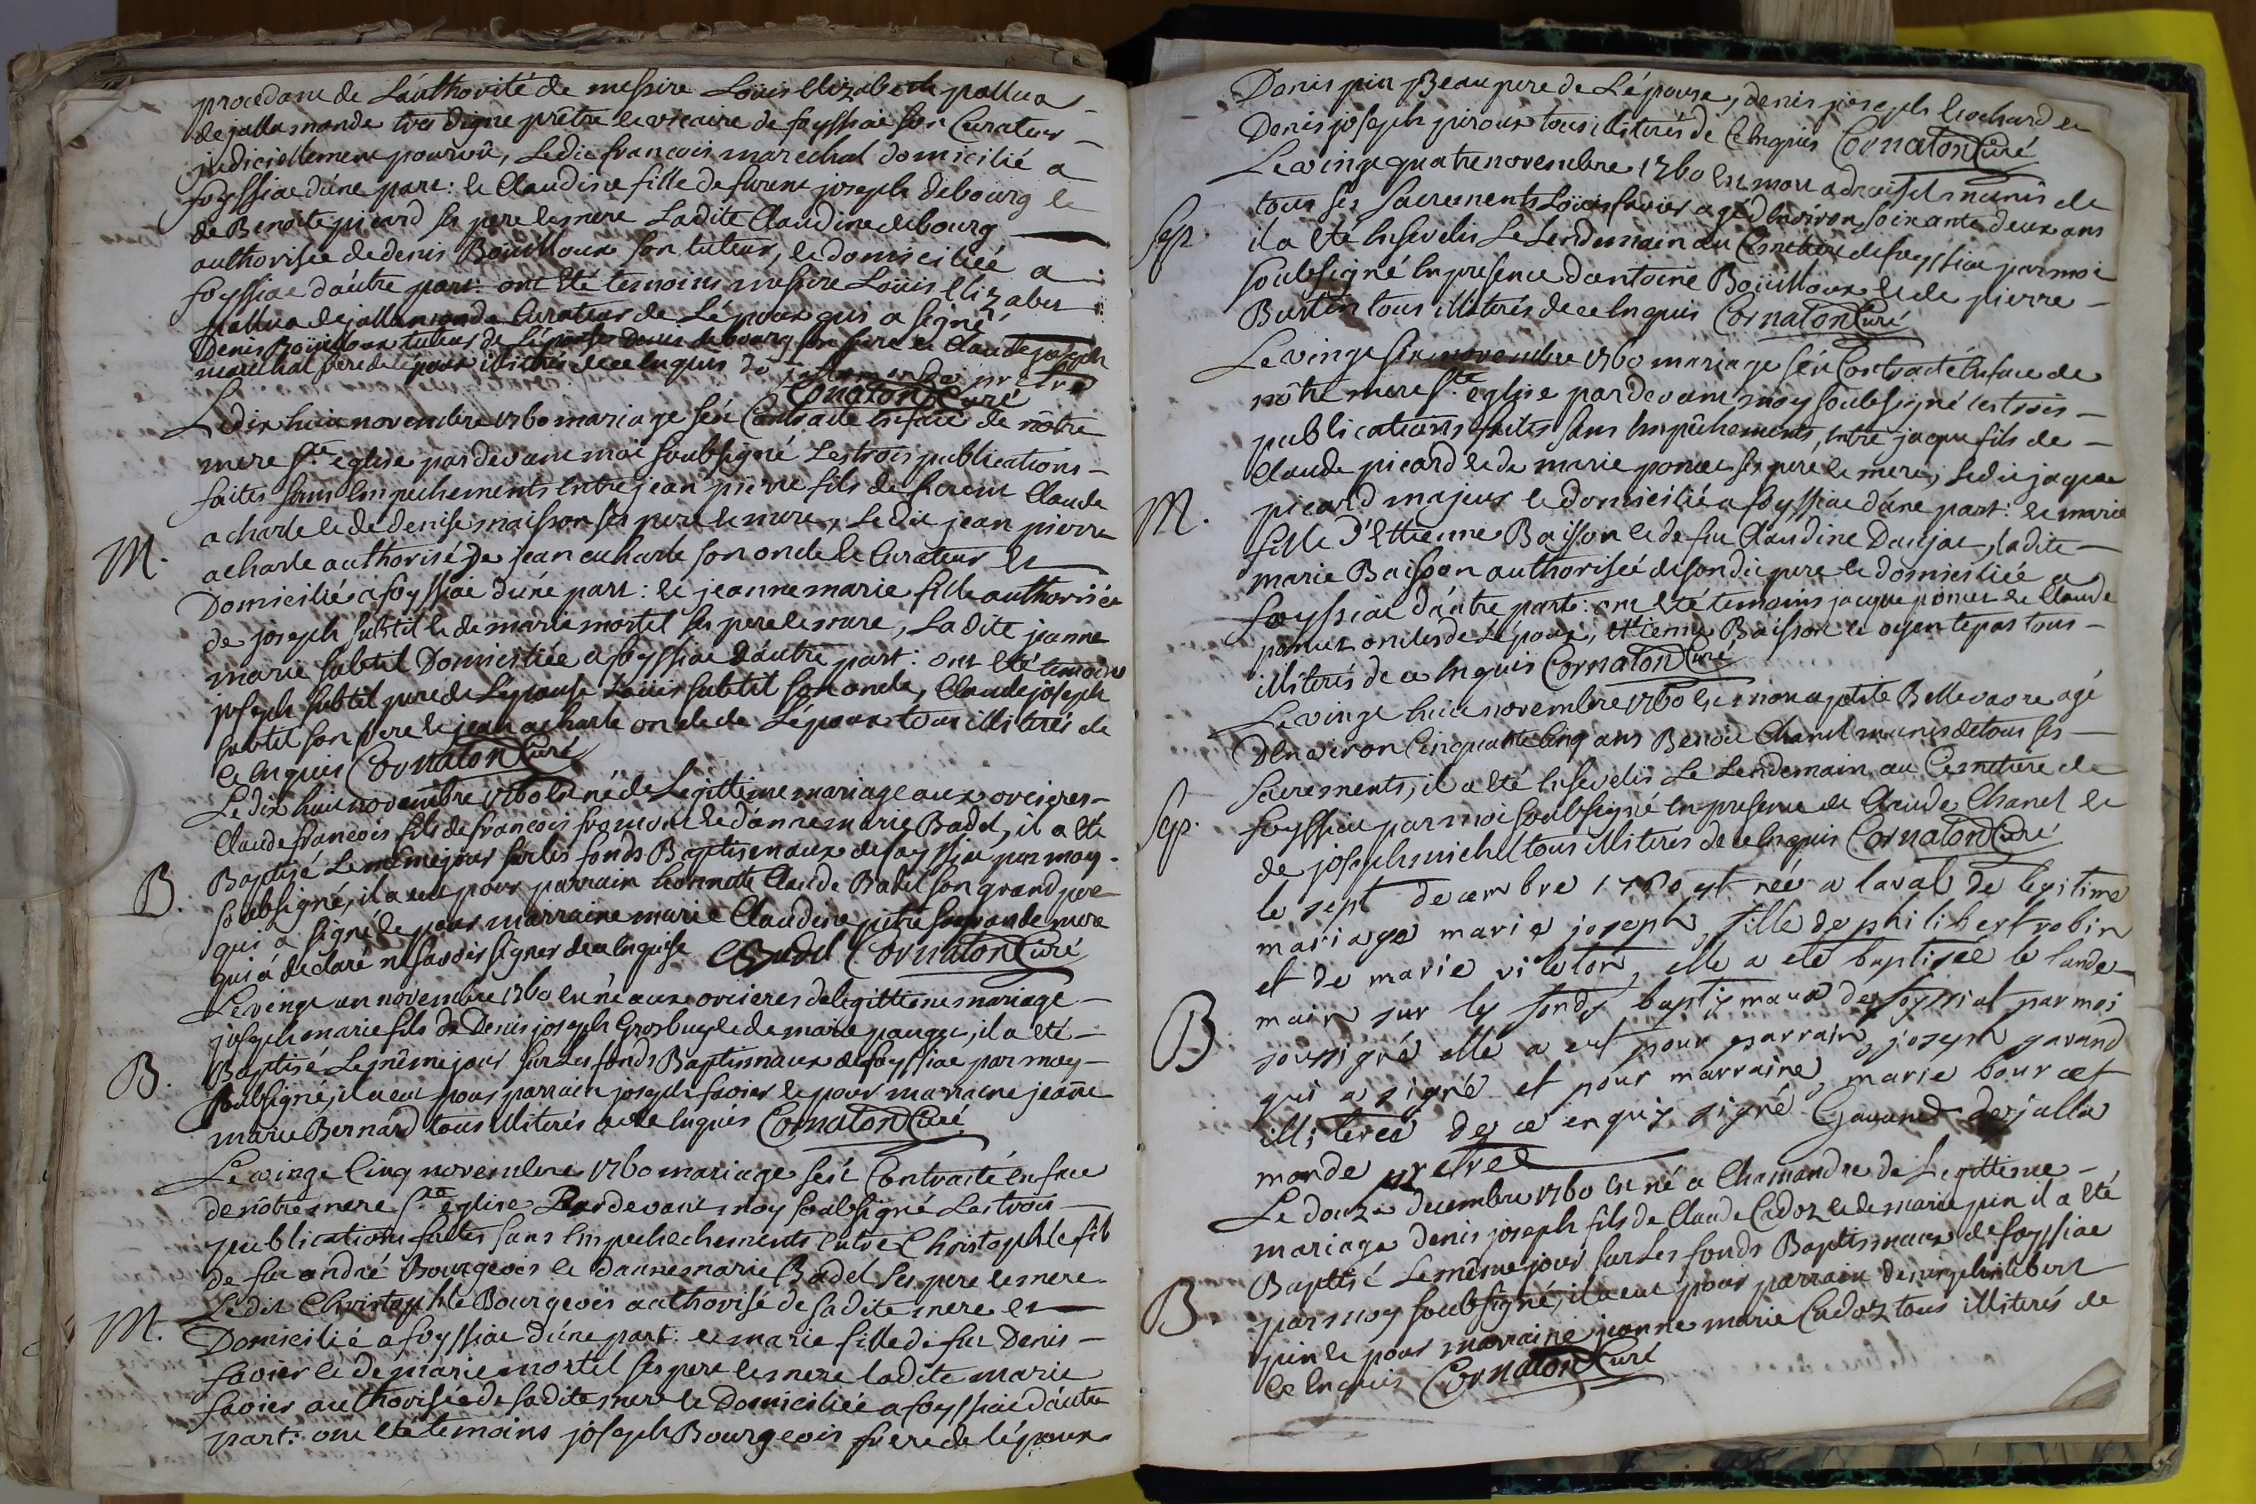 procedant de L'authorité de messire Louis Elizabeth pallua
de jallamonde tres digne prêtre et vicaire de foyssiac son Curateur
judiciellement pourvû, Ledit francois marechal domicilié a
foyssiac d'úne part: et Claudine fille de furent joseph debourg et
de Benoite picard ses pere et mere Ladite Claudine debourg
authorisée de denis Boüilloux son tuteur, et domiciliée a
foyssiac d'aútre part: ont eté temoins messire Louis elizabet
pallua de jallamonde Curateur de L'époux qui a signé
Denis Boüilloux tuteur de L'épouse Denis debourg son frere et Claude joseph
marechal frere de l'époux illiterés de ce enquis de jallamonde prêtre
Cornaton Curé
Le dix huit novembre 1760 mariage s'ést Contracté en face de nôtre
mere Ste église pardevant moi soubsigné Les trois publications
faites sans empechements entre jean pierre fils de furent Claude
acharle et de denise maisson ses pere et mere, Ledit jean pierre
M.
acharle authorisé de jean acharle son oncle et Curateur et
Domicilié a foyssiac d'úne part: et jeanne marie fille authorisée
de joseph subtil et de marie mortel ses pere et mere, Ladite jeanne
marie subtil Domiciliée a foyssiac d'aútre part: ont eté temoins
joseph subtil pere de L'épouse Loüis subtil son oncle, Claude joseph
subtil son frere et jean acharle oncle de L'époux tous illiterés de
ce enquis Cornaton Curé
Le dix huit novembre 1760 est né de Legittime mariage aux orcieres
Claude francois fils de francois fromont et d'anne marie Badel, il a eté
Baptisé Le même jour sur les fonds Baptismaux de foyssiac par moy
B.
soubsigné, il a eut pour parrain honnette Claude Badel son grand pere
qui a signé et pour marraine marie Claudine pitre sa grande mere
qui a déclaré ne savoir signer de ce enquise CBadel Cornaton Curé
Le vingt un novembre 1760 est né aux orcieres de legittime mariage
joseph marie fils de Denis joseph Grosbuy et de marie pauget, il a eté
B.
Baptisé Le même jour sur Les fonds Baptismaux de foyssiac par moy
soubsigné, il a eut pour parrain joseph favier et pour marraine jeanne
marie Bernard tous illiterés de ce enquis Cornaton Curé
Le vingt Cinq novembre 1760 mariage s'ést Contracté en face
de nôtre mere Ste église Pardevant moy soubsigné Les trois
publications faites sans empechechements entre Christophle fils
de fut andré Bourgeois et d'anne marie Badel ses pere et mere
Ledit Christophle Bourgeois authorisé de sa dite mere et
M.
Domicilié a foyssiac d'úne part: et marie fille de fut Denis
favier et de marie mortel ses pere et mere la dite marie
favier authorisée de sa dite mere et Domiciliée a foyssiac d'aútre
part: ont eté temoins joseph Bourgeois frere de l'époux
Denis pin Beaupere de L'épouse, denis joseph brochard et
Denis joseph piroux tous illiterés de Ce enquis Cornaton Curé
Le vingt quatre novembre 1760 est mort munis de
tous ses Sacrements Loüis favier agé d'environ soixante deux ans
Sep.
il a eté ensevelis Le Lendemain au Cimetiere de foyssiac par moi
soubsigné en presence d'antoine Boüilloux et de pierre
Burtin tous illiterés de ce enquis Cornaton Curé
Le vingt six novembre 1760 mariage s'ést Contracté en face de
nôtre mere Ste église pardevant moy soubsigné les trois
publications faites sans empêchements, entre jaque fils de
Claude picard et de marie poncet ses pere et mere, Ledit jaque
M.
picard majeur et domicilié a foyssiac d'úne part: et marie
fille d'Ettienne Baisson et de fut Claudine Daujac, ladite
marie Baisson authorisée de son dit pere et domiciliée a
foyssiac d'aútre part: ont eté temoins jacque poncet et Claude
poncet oncles de L'époux, Ettienne Baisson et oyen tepas tous
illiterés de ce enquis Cornaton Curé
Le vingt huit novembre 1760 est mort a petite Bellevavre agé
D'environ Cinquante Cinq ans Benoit Chanel munis de tous ses
Sacrements, il a eté ensevelis Le Lendemain au Cemetiere de
Sep.
foyssiac par moi soubsigné en presence de Claude Chanel et
de joseph michel tous illiterés de ce enquis Cornaton Curé
le sept decembre 1760 est née a laval de legitime
mariage marie joseph, fille de philibert robin
et de marie vileton, elle a eté baptisée le lande-
main sur les fonds baptismaux de foyssiat par moi
B
soussigné elle a eut pour parrain, joseph gavand
qui a signé et pour marraine marie bourcet
illiterée de ce enquis signé Gavand de jalla
monde pretre
Le douze decembre 1760 est né a Chamandre de Legittime
mariage denis joseph fils de Claude Cadoz et de marie pin il a eté
Baptisé Le même jour sur Les fonds Baptismaux de foyssiac
B.
par moy soubsigné, il a eut pour parrain denis philibert
pin et pour marraine jeanne marie Cadoz tous illiterés de
Ce enquis Cornaton Curé